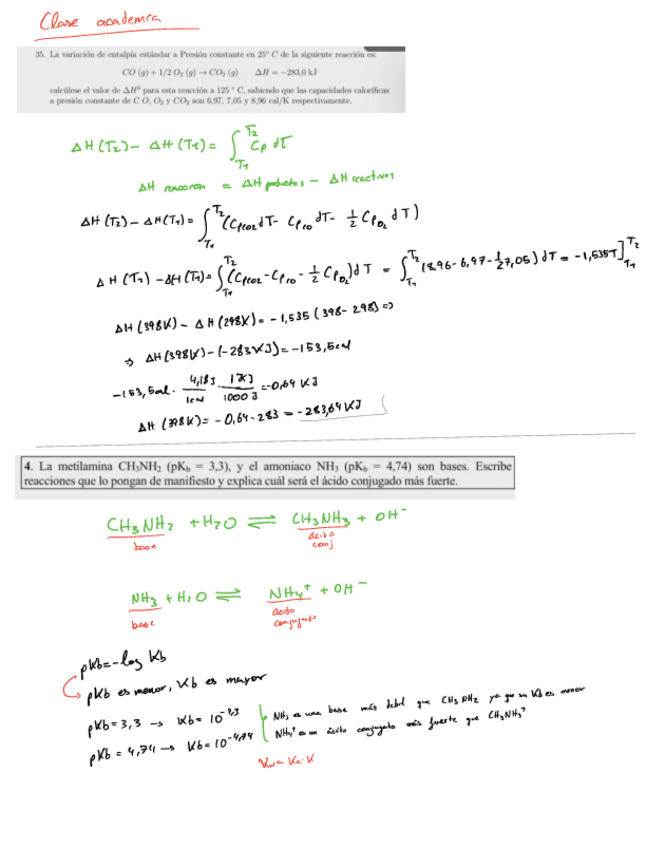 Clase academia
35. La variación de entalpía estándar a Presión constante en 25° C de la siguiente reacción es:
CO (g) + 1/2 O₂ (g) → CO₂ (g)    ΔH = −283,0 kJ
calcúlese el valor de ΔH⁰ para esta reacción a 125 ° C, sabiendo que las capacidades caloríficas
a presión constante de C O, O₂ y CO₂ son 6,97, 7,05 y 8,96 cal/K respectivamente.
ΔH(T₂) − ΔH(T₁) = ∫_{T₁}^{T₂} Cp dT
ΔH reaccion = ΔH productos − ΔH reactivos
ΔH(T₂) − ΔH(T₁) = ∫_{T₁}^{T₂} (Cp_{CO2} dT − Cp_{CO} dT − 1/2 Cp_{O2} dT)
ΔH(T₂) − ΔH(T₁) = ∫_{T₁}^{T₂} (Cp_{CO2} − Cp_{CO} − 1/2 Cp_{O2}) dT = ∫_{T₁}^{T₂} (8,96 − 6,97 − 1/2 7,05) dT = −1,535T]_{T₁}^{T₂}
ΔH(398K) − ΔH(298K) = −1,535 (398 − 298) ⇒
⇒ ΔH(398K) − (−283KJ) = −153,5cal
−153,5cal · 4,18J/1cal · 1KJ/1000J = −0,64 KJ
ΔH(398K) = −0,64 − 283 = −283,64KJ
4. La metilamina CH₃NH₂ (pKb = 3,3), y el amoniaco NH₃ (pKb = 4,74) son bases. Escribe
reacciones que lo pongan de manifiesto y explica cuál será el ácido conjugado más fuerte.
CH₃NH₂ + H₂O ⇌ CH₃NH₃ + OH⁻
base    ácido
conj
NH₃ + H₂O ⇌ NH₄⁺ + OH⁻
base    ácido
conjugado
pKb = −log Kb
pKb es menor, Kb es mayor
pKb = 3,3 → Kb = 10^{−3,3}    NH₃ es una base más débil que CH₃NH₂ ya que su Kb es menor
pKb = 4,74 → Kb = 10^{−4,74}    NH₄⁺ es un ácido conjugado más fuerte que CH₃NH₃⁺
Kw = Ka · K